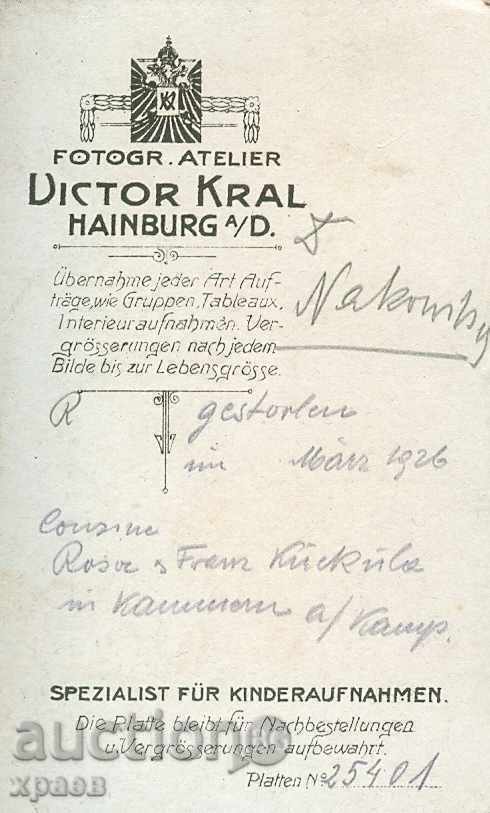 FOTOGR. ATELIER
VICTOR KRAL
HAINBURG A/D.
Übernahme jeder Art Auf-
träge, wie Gruppen, Tableaux,
Interieuraufnahmen. Ver-
grösserungen nach jedem
Bilde bis zur Lebensgrösse.
R gestorben
im März 1926
Cousine
Rosa & Franz Kuckula
in Kammern a/Kamp.
SPEZIALIST FÜR KINDERAUFNAHMEN.
Die Platte bleibt für Nachbestellungen
u. Vergrösserungen aufbewahrt.
Platten No 25401
auction
храов